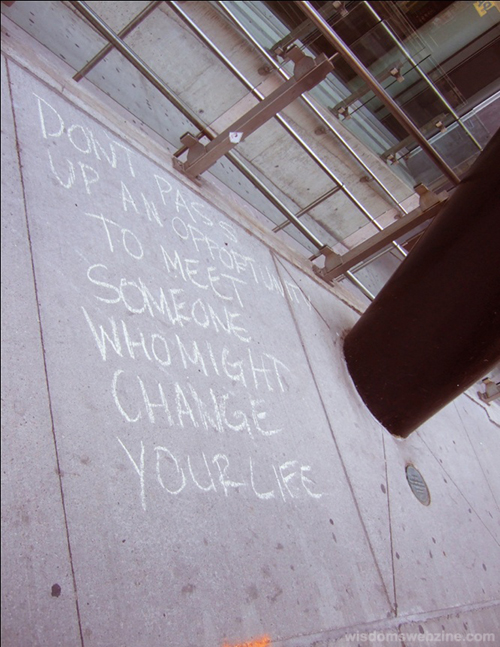 DONT PASS
UP AN OPPORTUNITY
TO MEET
SOMEONE
WHO MIGHT
CHANGE
YOUR LIFE
wisdomswebzine.com